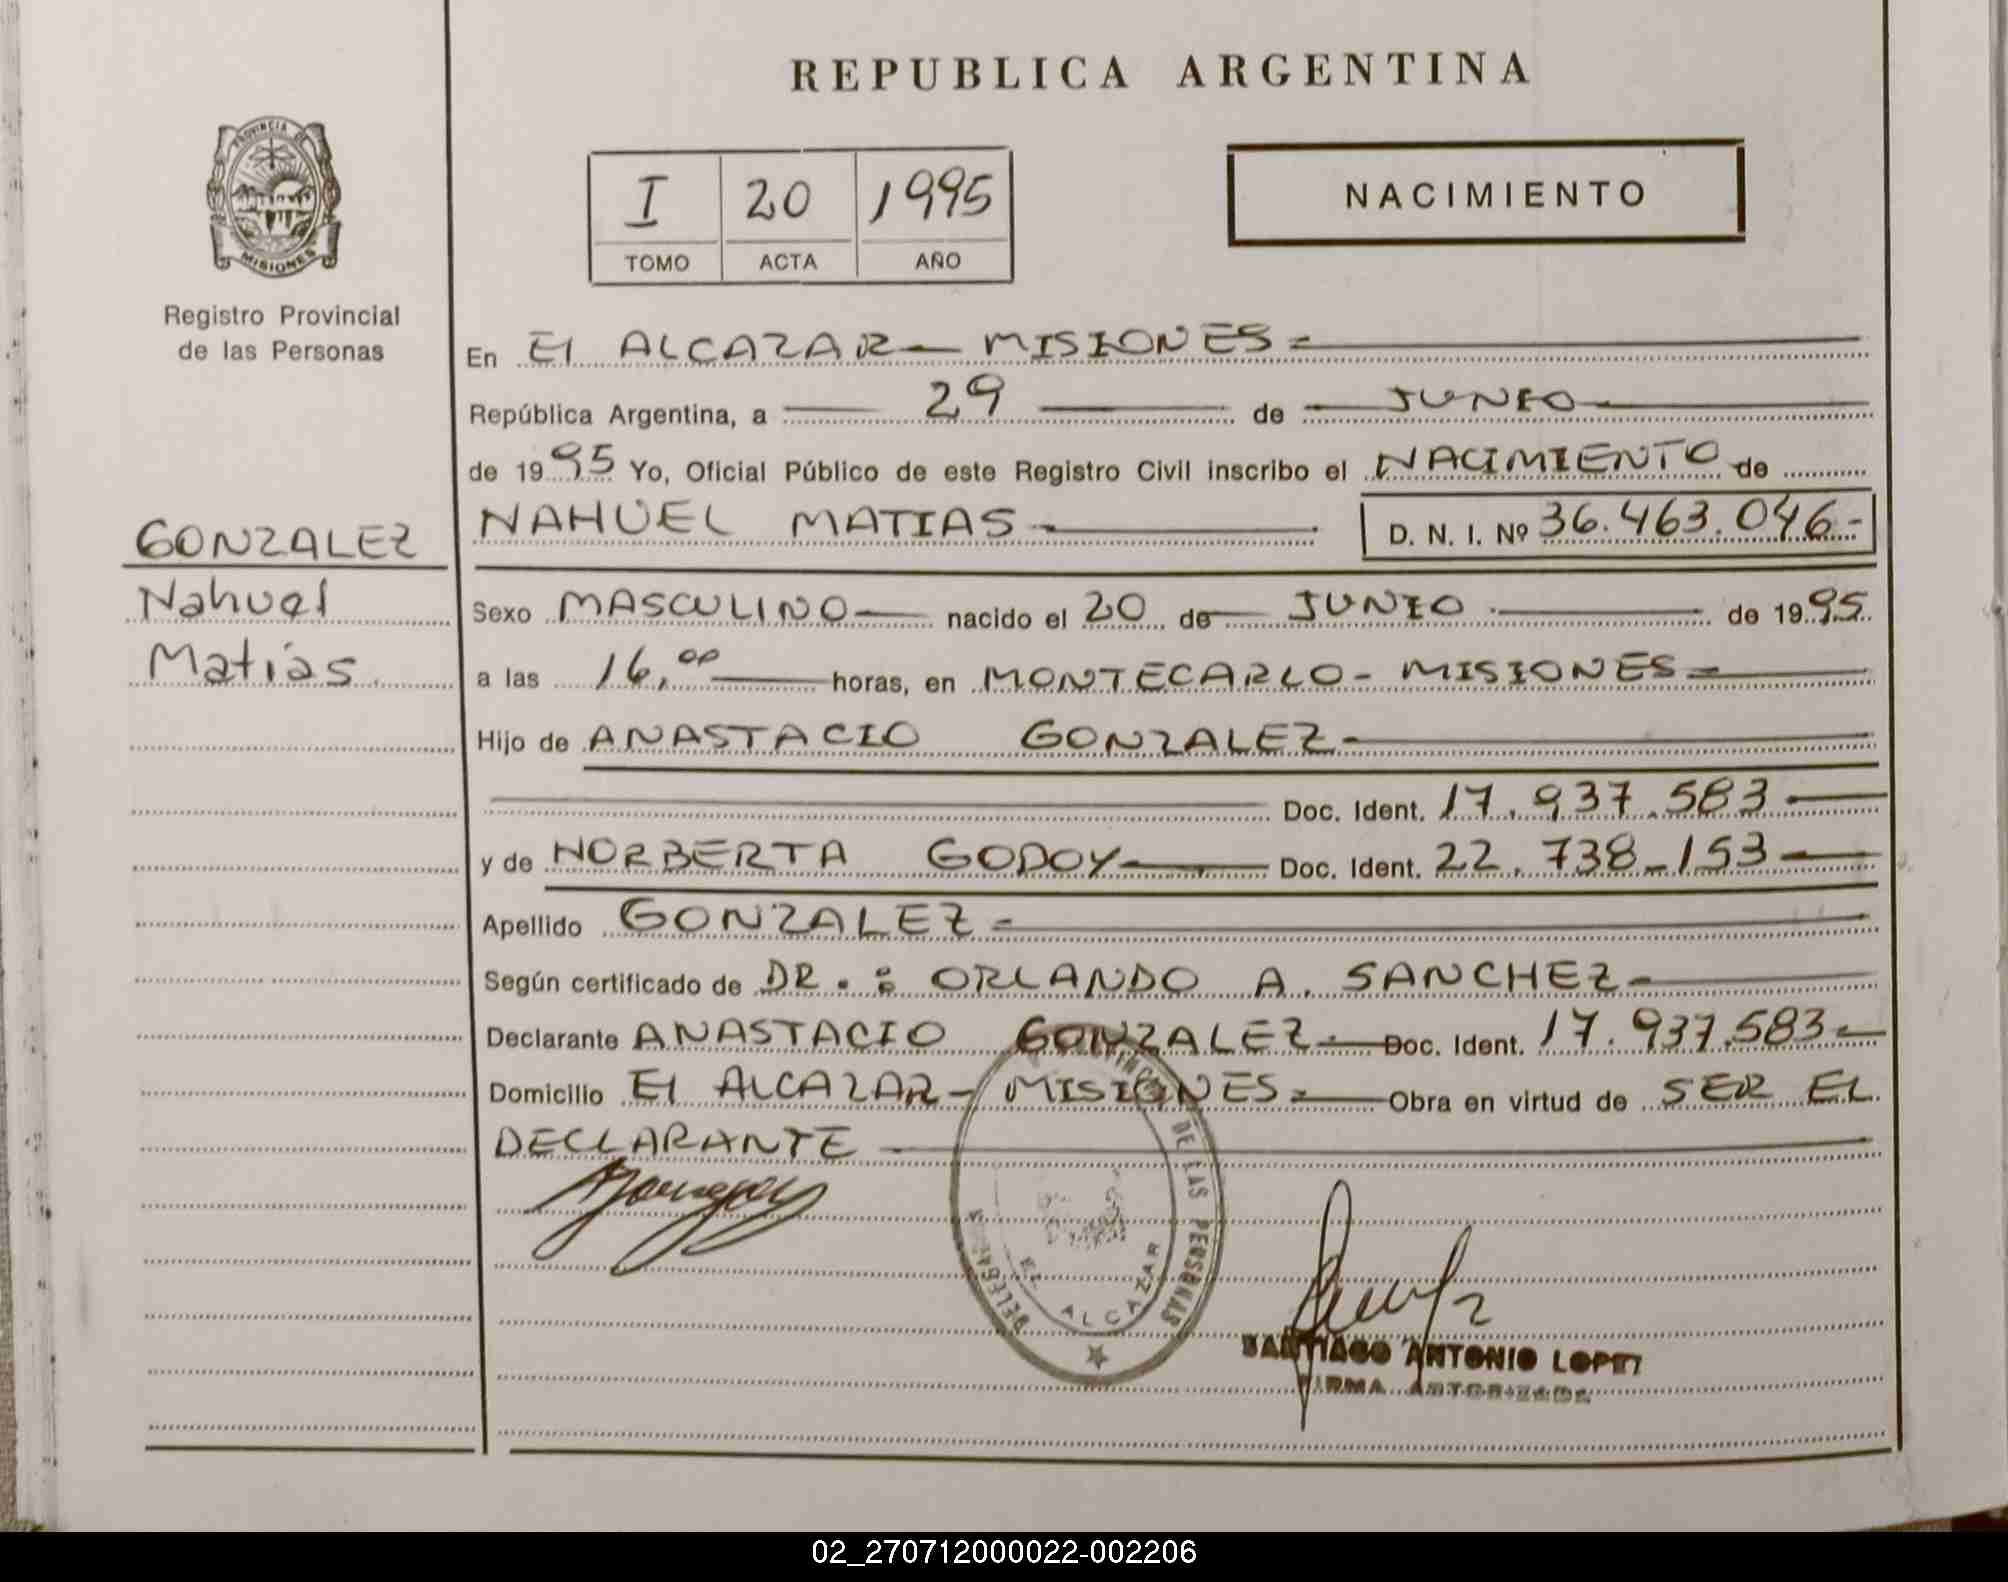 REPUBLICA ARGENTINA
PROVINCIA DE
MISIONES
Registro Provincial
de las Personas
I 20 1995
TOMO ACTA AÑO
NACIMIENTO
En El ALCAZAR - MISIONES
República Argentina, a 29 de JUNIO
de 1995 Yo, Oficial Público de este Registro Civil inscribo el NACIMIENTO de
NAHUEL MATIAS D. N. I. Nº 36.463.046.-
GONZALEZ
Nahuel
Matias
Sexo MASCULINO nacido el 20 de JUNIO de 1995
a las 16,00 horas, en MONTECARLO - MISIONES
Hijo de ANASTACIO GONZALEZ
Doc. Ident. 17.937.583
y de NORBERTA GODOY Doc. Ident. 22.738.153
Apellido GONZALEZ
Según certificado de DR.: ORLANDO A. SANCHEZ
Declarante ANASTACIO GONZALEZ Doc. Ident. 17.937.583
Domicilio El ALCAZAR - MISIONES Obra en virtud de SER EL
DECLARANTE
DE LAS PERSONAS
EL ALCAZAR
SANTIAGO ANTONIO LOPEZ
FIRMA AUTORIZADA
02_270712000022-002206